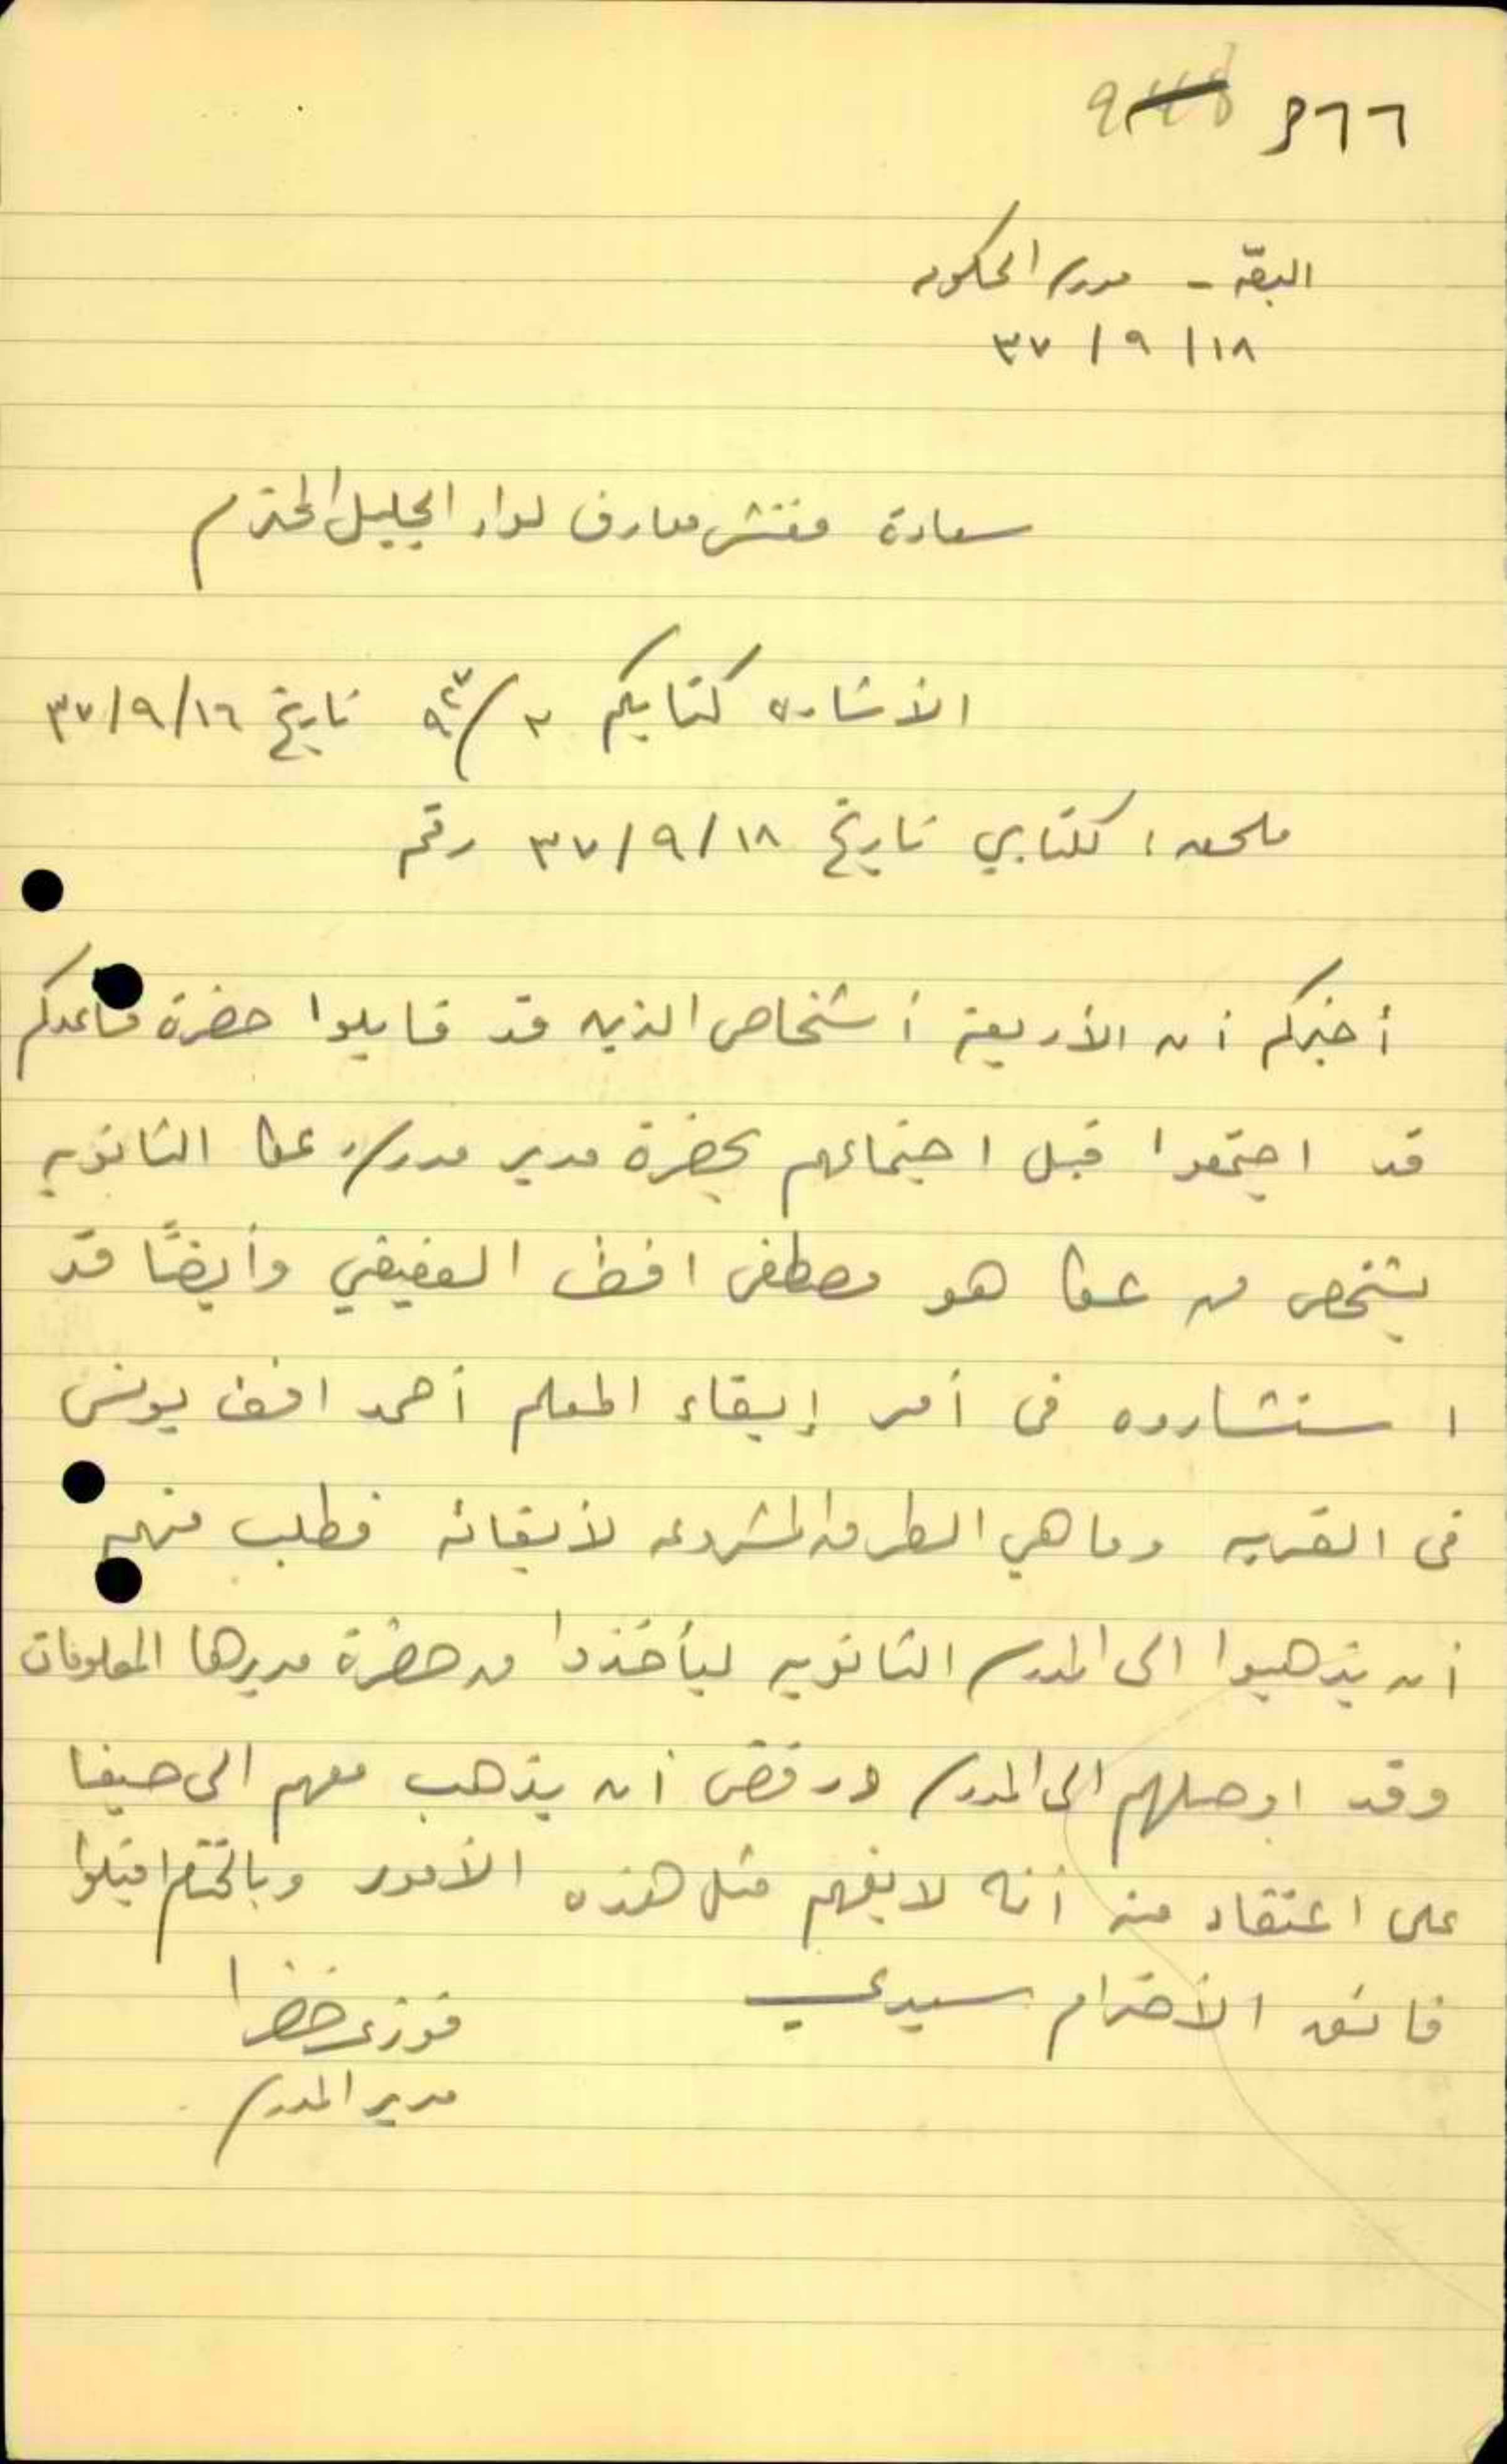 م٦٦
البصّة - مدرسة الحكومة
١٨ / ٩ / ٣٧
سعادة مفتش معارف لواء الجليل المحترم
الأشارة كتابكم تاريخ ١٦/٩/٣٧
ملحق: لكتابي تاريخ ١٨/٩/٣٧ رقم
أخبركم أن الأربعة أشخاص الذين قد قابلوا حضرة مساعدكم
قد اجتمعوا قبل اجتماعهم بحضرة مدير مدرسة عكا الثانوية
بشخص من عكا هو مصطفى افندي العفيفي وأيضًا قد
استشاروه في أمر إبقاء المعلم أحمد افندي يونس
في القرية وما هي الطرق المشروعة لأبقائه فطلب منهم
أن يذهبوا الى المدرسة الثانوية ليأخذوا من حضرة مديرها المعلومات
وقد اوصلهم الى المدرسة ورفض أن يذهب معهم الى حيفا
على اعتقاد منه أنه لا يفهم مثل هذه الأمور وبالختام اقبلوا
فائق الأحترام سيدي
فوزي خضرا
مدير المدرسة